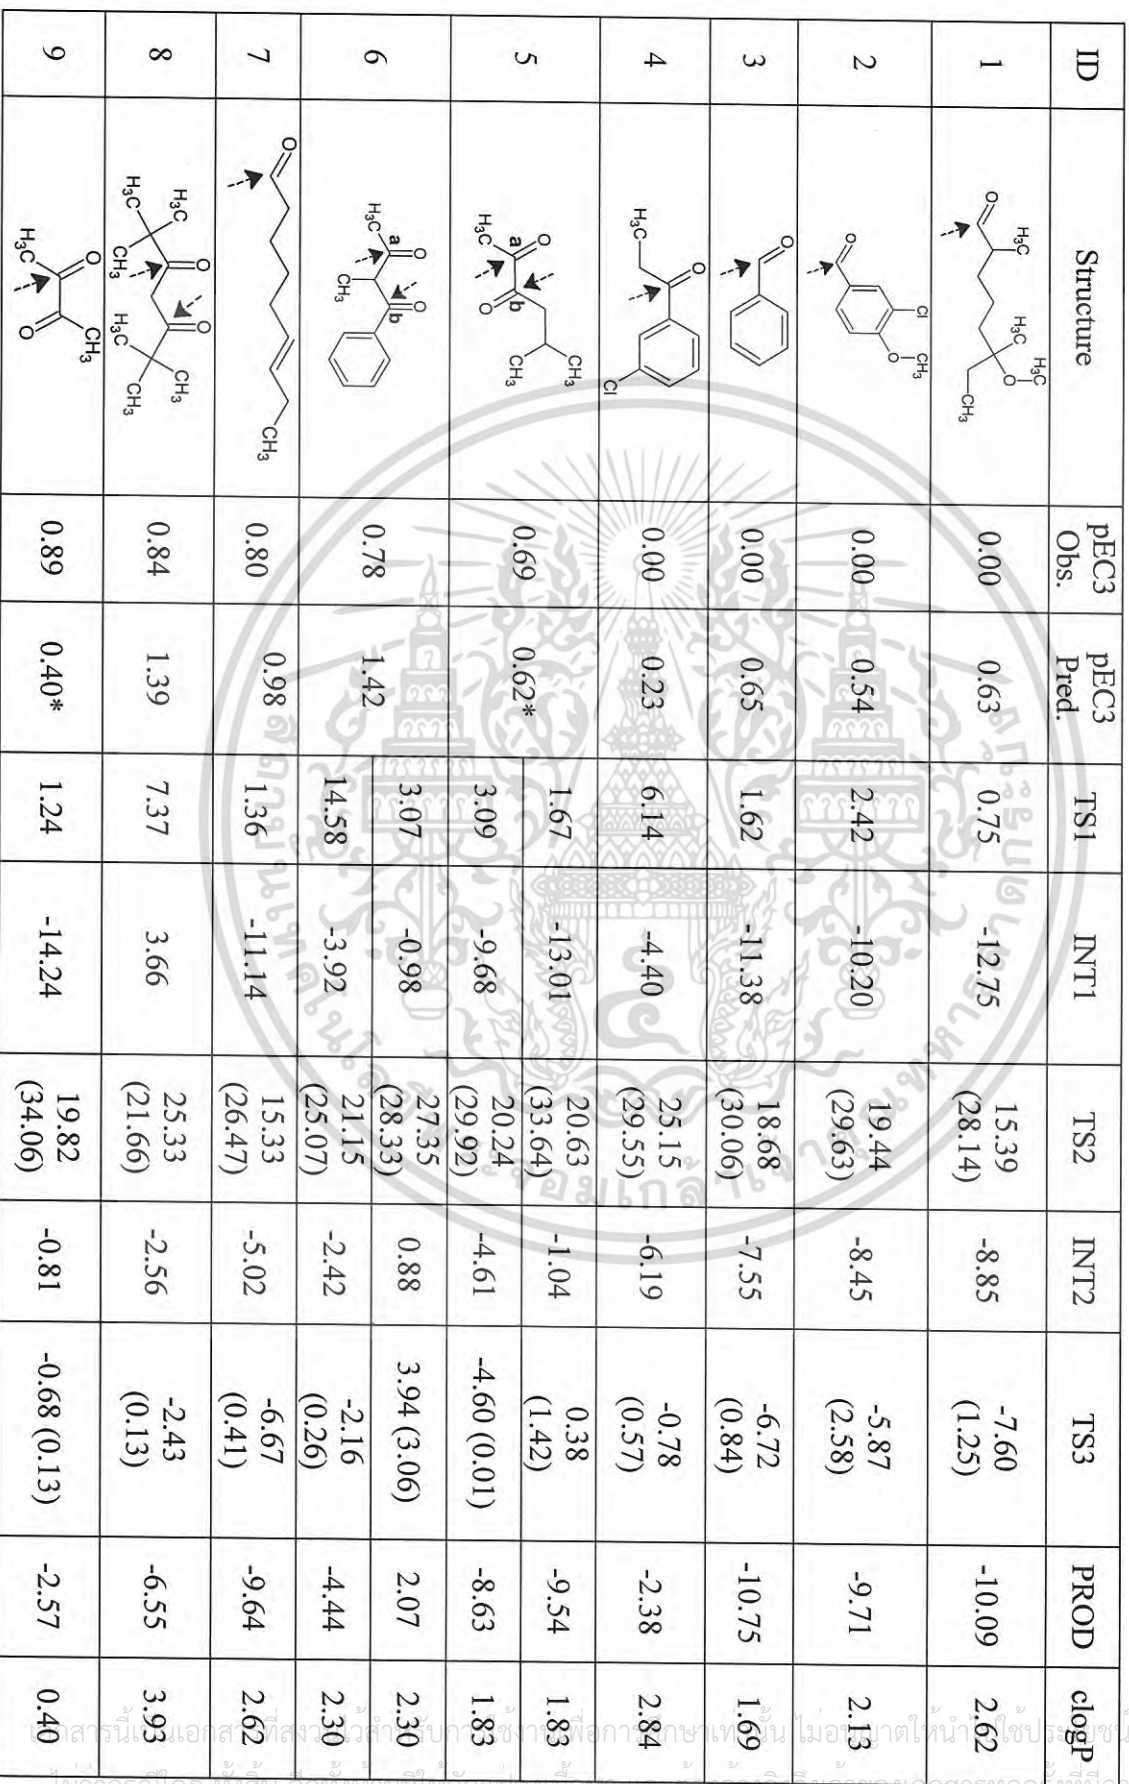 ID Structure pEC3 Obs. pEC3 Pred. TS1 INT1 TS2 INT2 TS3 PROD clogP
1 O H₃C H₃C O H₃C CH₃ 0.00 0.63 0.75 -12.75 15.39 (28.14) -8.85 -7.60 (1.25) -10.09 2.62
2 O Cl O CH₃ 0.00 0.54 2.42 -10.20 19.44 (29.63) -8.45 -5.87 (2.58) -9.71 2.13
3 O 0.00 0.65 1.62 -11.38 18.68 (30.06) -7.55 -6.72 (0.84) -10.75 1.69
4 H₃C O Cl 0.00 0.23 6.14 -4.40 25.15 (29.55) -6.19 -0.78 (0.57) -2.38 2.84
5 H₃C a O b O CH₃ CH₃ 0.69 0.62* 1.67 -13.01 20.63 (33.64) -1.04 0.38 (1.42) -9.54 1.83
3.09 -9.68 20.24 (29.92) -4.61 -4.60 (0.01) -8.63 1.83
6 H₃C a O CH₃ O b 0.78 1.42 3.07 -0.98 27.35 (28.33) 0.88 3.94 (3.06) 2.07 2.30
14.58 -3.92 21.15 (25.07) -2.42 -2.16 (0.26) -4.44 2.30
7 O CH₃ 0.80 0.98 1.36 -11.14 15.33 (26.47) -5.02 -6.67 (0.41) -9.64 2.62
8 H₃C H₃C CH₃ O O H₃C CH₃ CH₃ 0.84 1.39 7.37 3.66 25.33 (21.66) -2.56 -2.43 (0.13) -6.55 3.93
9 H₃C O O CH₃ 0.89 0.40* 1.24 -14.24 19.82 (34.06) -0.81 -0.68 (0.13) -2.57 0.40
เอกสารนี้เป็นเอกสารที่สงวนไว้สำหรับการใช้งานเพื่อการศึกษาเท่านั้น ไม่อนุญาตให้นำไปใช้ประโยชน์